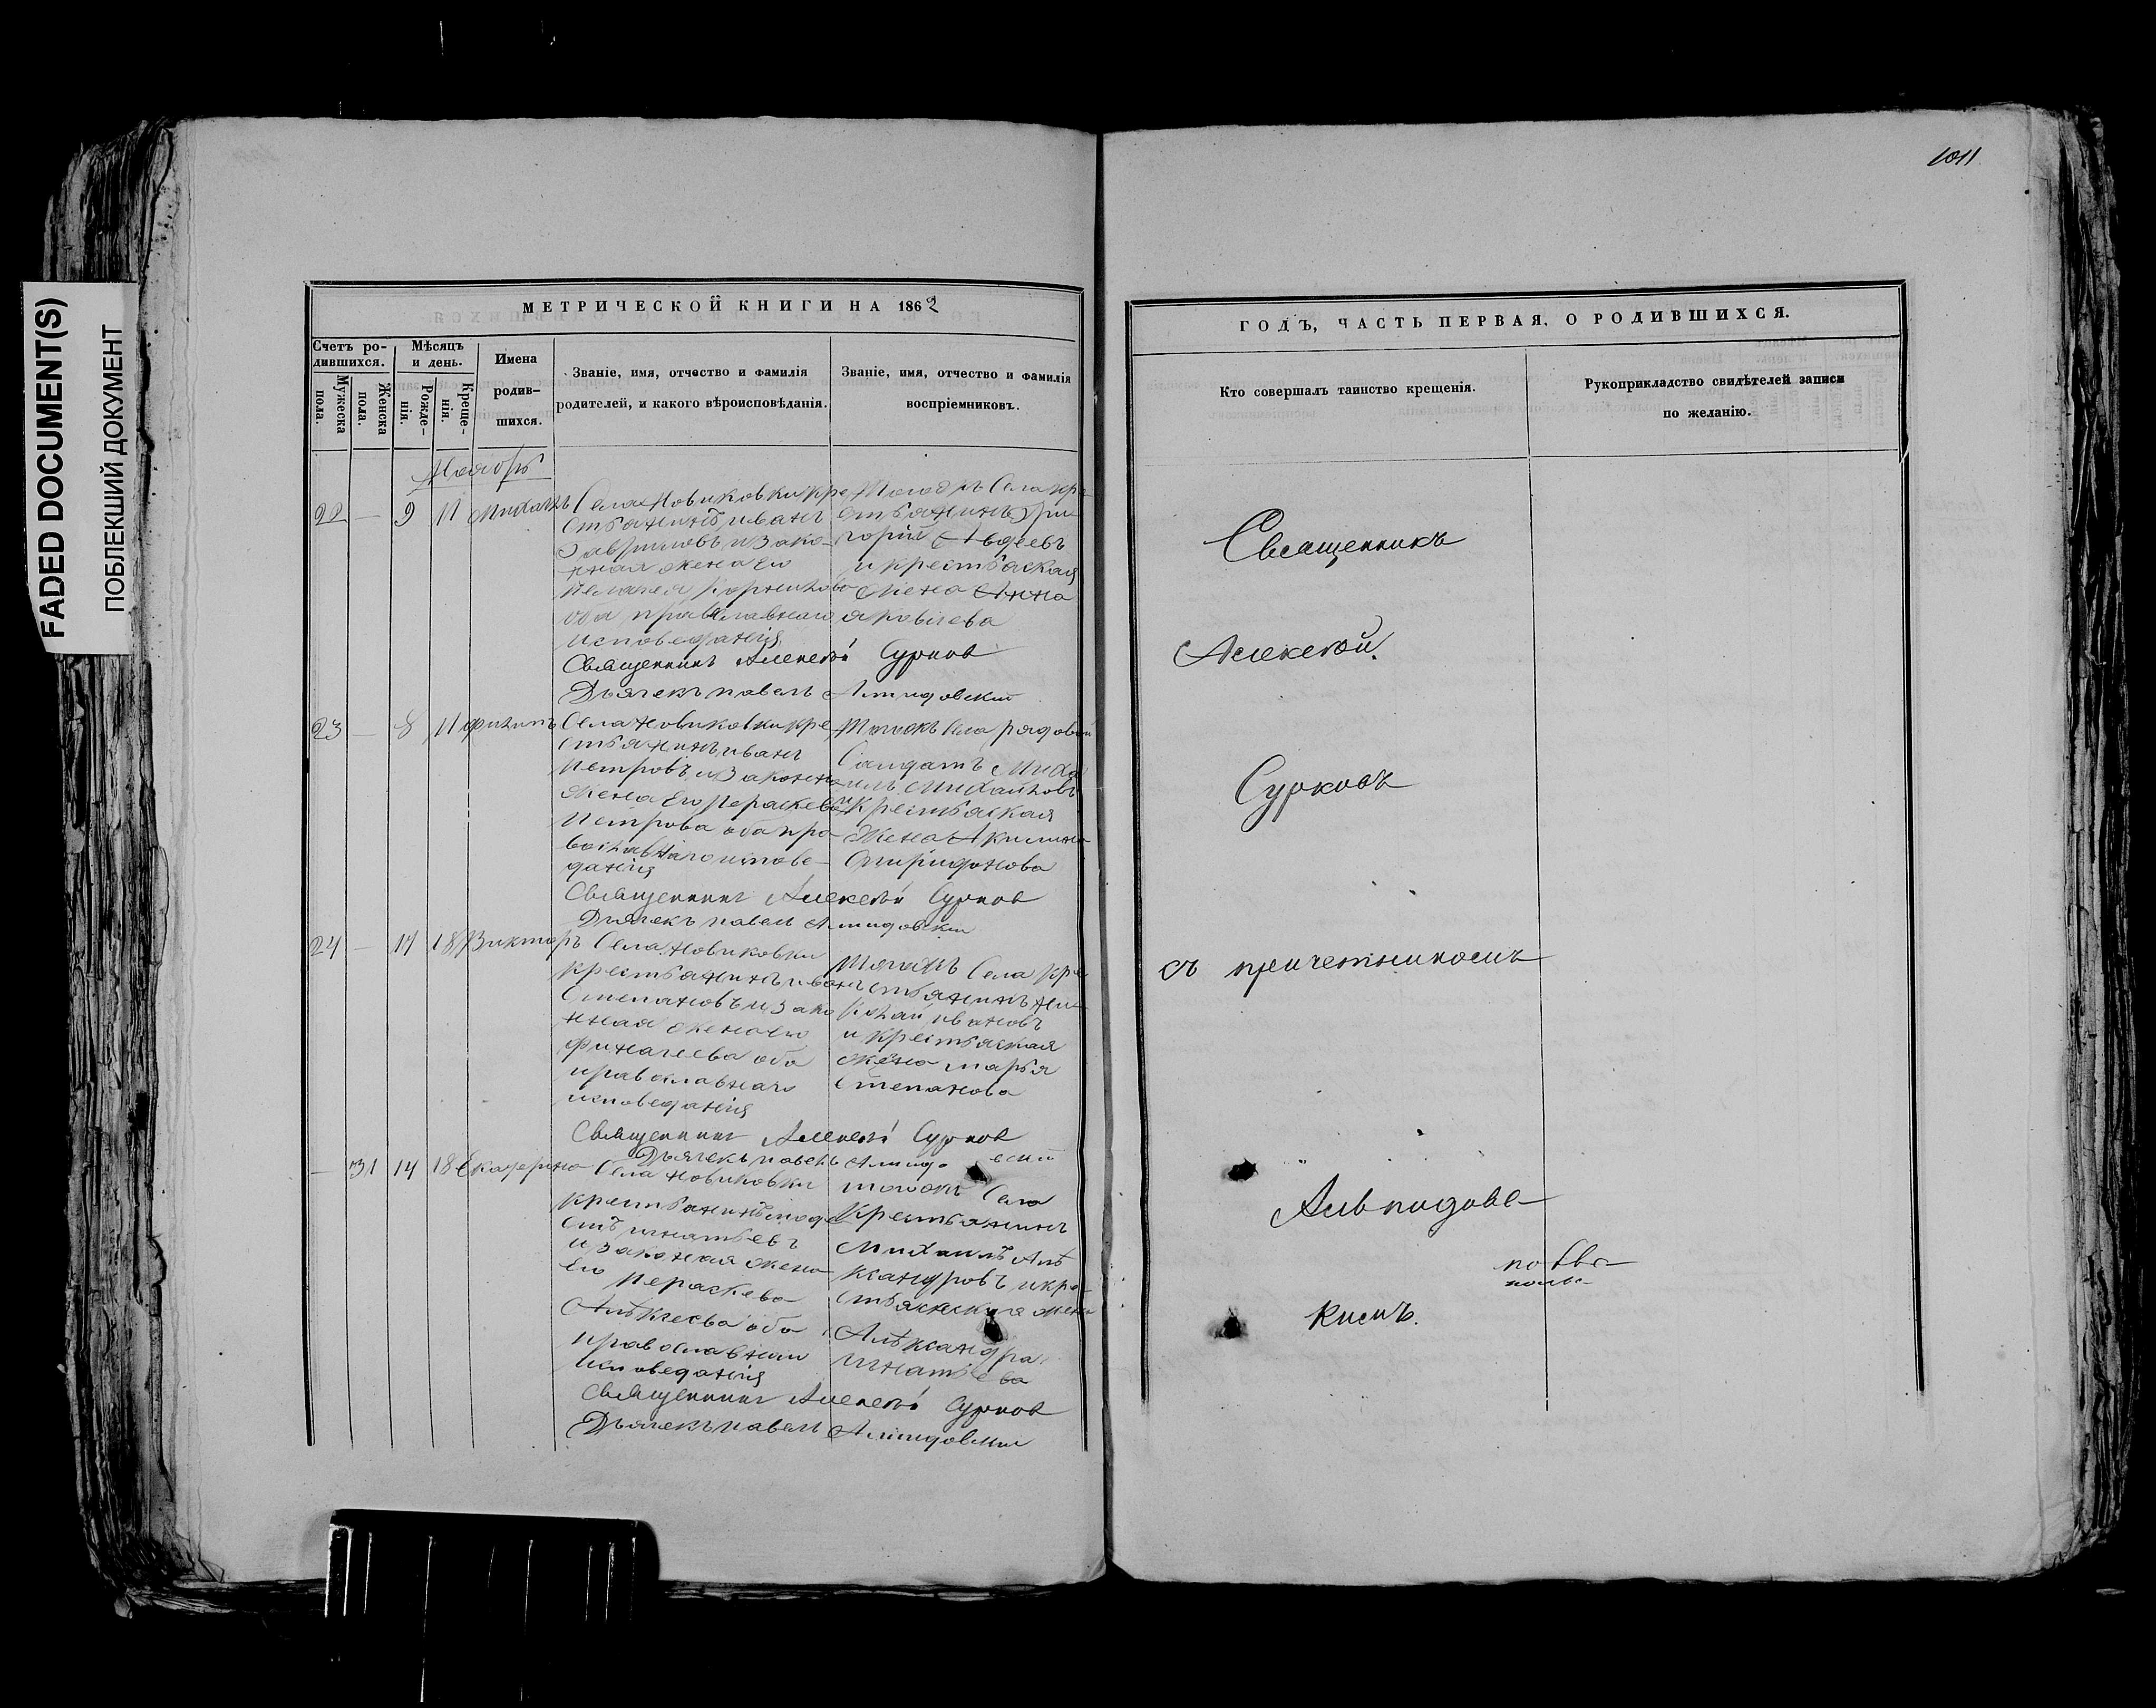 1011
FADED DOCUMENT(S)
ПОБЛЕКШИЙ ДОКУМЕНТ
МЕТРИЧЕСКОЙ КНИГИ НА 1862
Счетъ ро-
дившихся.
Мужеска
пола.
Женска
пола.
Мѣсяцъ
и день.
Рожде-
нія.
Креще-
нія.
Имена
родив-
шихся.
Званіе, имя, отчество и фамилія
родителей, и какого вѣроисповѣданія.
Званіе, имя, отчество и фамилія
воспріемниковъ.
Ноябрь
22 — 9 11 Михаилъ
Села Новиковки кре
стьянинъ иванъ
Гавриловъ изако-
нная жена Его
Пелагея
оба православнаго
исповеданія
Тогожъ Села кре
стьянинъ Гри-
горий Авдеевъ
и крестьяская
Жена Анна
яковлева
Священникъ Алексѣй Сурков
Дьячекъ павелъ
23 — 8 11 филипъ
Села Новиковки кре
стьянинъ иванъ
Петровъ изаконна
жена Его Пераскева
Петрова оба пра
вославнаго испове-
данія
Тогожъ Села рядовой
Салдатъ Миха
илъ Михайловъ
и Крестьяская
Жена Акилина
Спиридонова
Священникъ Алексѣй Сурков
Дьячекъ павелъ
24 — 14 18 Викторъ
Села Новиковки
крестьянинъ иванъ
Степановъ изако
нная жена его
оба
православнаго
исповеданія
Тогожъ Села кре
стьянинъ Ни-
колай ивановъ
и крестьяская
жена марья
Степанова
Священникъ Алексѣй Сурков
Дьячекъ павелъ
— 31 14 18 Екатерина
Села Новиковки
крестьянинъ
игнатьевъ
изаконая жена
Его Пераскева
Алѣксева оба
православнаго
исповеданія
тогожъ Села
Крестьянинъ
Михаилъ Алѣ
ксандровъ икре
стьянская жена
Алѣксандра
игнатьева
Священникъ Алексѣй Сурков
Дьячекъ павелъ
ГОДЪ, ЧАСТЬ ПЕРВАЯ, О РОДИВШИХСЯ.
Кто совершалъ таинство крещенія.
Рукоприкладство свидѣтелей записи
по желанію.
Священникъ
Алексѣй
Сурковъ
съ причетникомъ
кимъ.